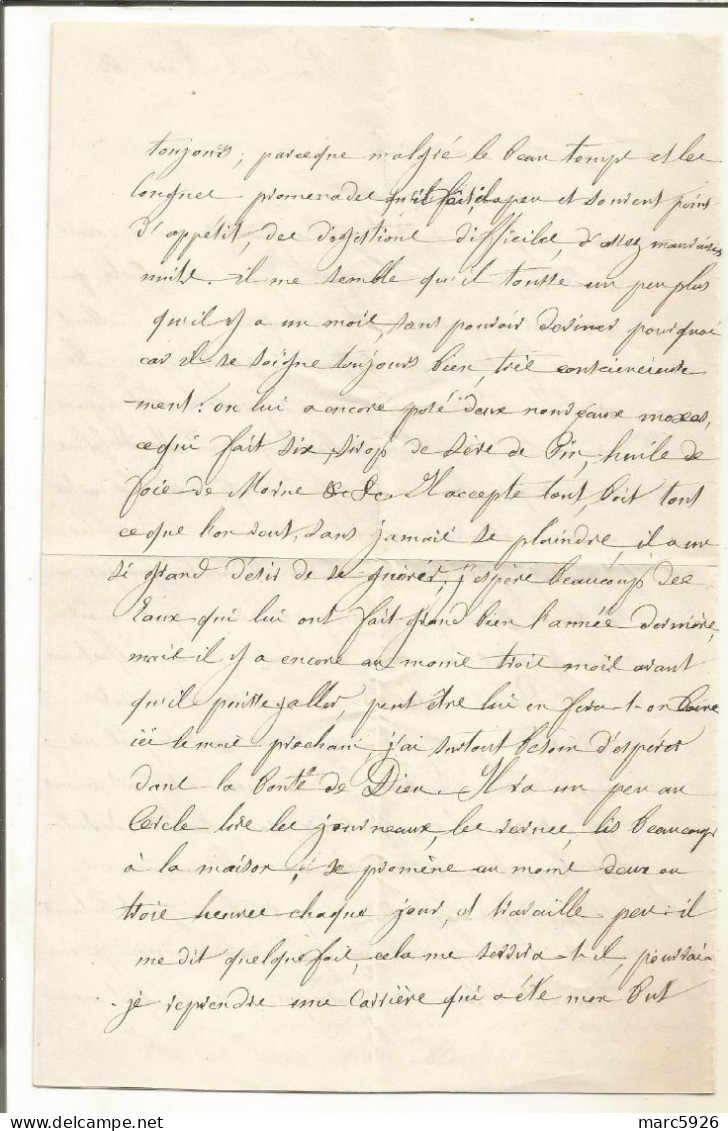 toujours ; parceque malgré le beau temps et les
longues promenades qu'il fait, il a peu et souvent point
d'appétit, des digestions difficiles, d'assez mauvaises
nuits. il me semble qu'il tousse un peu plus
qu'il y a un mois, sans pouvoir deviner pourquoi
car il se soigne toujours bien, très consciencieuse
ment : on lui a encore posé deux nouveaux moxas,
ce qui fait six, sirop de sève de Pin, huile de
foie de Morue &c &c. Il accepte tout, boit tout
ce que l'on veut, sans jamais se plaindre, il a un
si grand désir de se guérir, j'espère beaucoup des
Eaux qui lui ont fait grand bien l'année dernière,
mais il y a encore au moins trois mois avant
qu'il puisse y aller, peut être lui en fera-t-on boire
ici le mois prochain j'ai surtout besoin d'espérer
dans la bonté de Dieu. Il va un peu au
Cercle lire les journeaux, les revues, lis beaucoup
à la maison, se promène au moins deux ou
trois heures chaque jour, et travaille peu. il
me dit quelque fois, cela me servira-t-il, pourrai-
je reprendre une Carrière qui a été mon but
marc5926